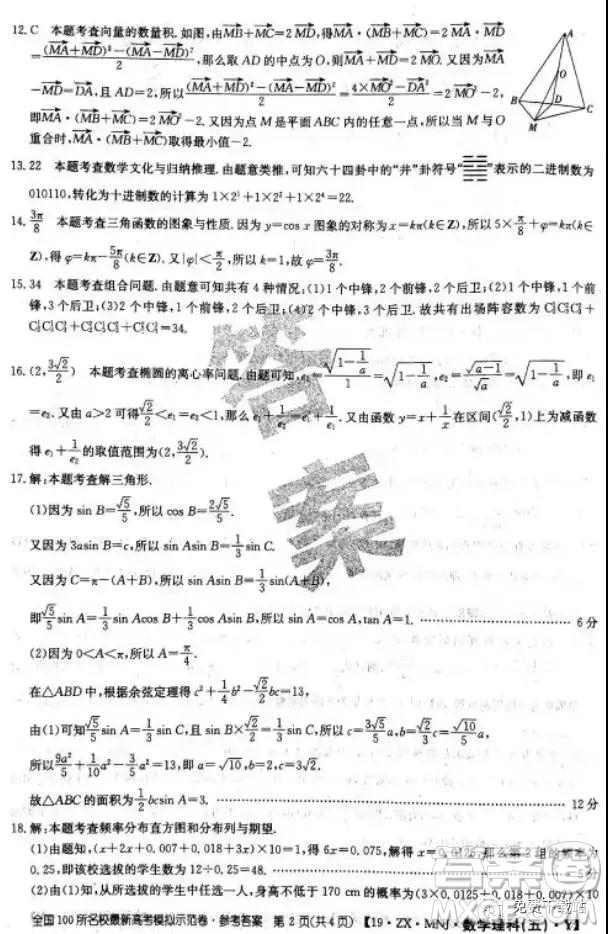 12. C 本题考查向量的数量积. 如图,由MB+MC=2MD,得MA·(MB+MC)=2MA·MD
=((MA+MD)²-(MA-MD)²)/2,那么取AD的中点为O,则MA+MD=2MO. 又因为MA
-MD=DA,且AD=2,所以((MA+MD)²-(MA-MD)²)/2=(4×MO²-DA²)/2=2MO²-2,
即MA·(MB+MC)=2MO²-2. 又因为点M是平面ABC内的任意一点,所以当M与O
重合时,MA·(MB+MC)取得最小值-2.
A
O
B
D
C
M
13. 22 本题考查数学文化与归纳推理. 由题意类推,可知六十四卦中的“井”卦符号“ ”表示的二进制数为
010110,转化为十进制数的计算为1×2¹+1×2²+1×2⁴=22.
14. 3π/8 本题考查三角函数的图象与性质. 因为y=cos x图象的对称为x=kπ(k∈Z),所以5×π/8+φ=kπ(k∈
Z),得φ=kπ-5π/8(k∈Z). 又|φ|<π/2,所以k=1,故φ=3π/8.
15. 34 本题考查组合问题. 由题意可知共有4种情况:(1)1个中锋,2个前锋,2个后卫;(2)1个中锋,1个前
锋,3个后卫;(3)2个中锋,1个前锋,2个后卫;(4)2个中锋,3个后卫. 故共有出场阵容数为
=34.
16. (2,3√2/2) 本题考查椭圆的离心率问题. 由题可知,e₁=√(1-1/a)/1=√(1-1/a),e₂=√(a-1)/√a=√(1-1/a),即e₁
=e₂. 又由a>2可得√2/2<e₁=e₂<1,那么e₁+1/e₂=e₁+1/e₁. 又由函数y=x+1/x在区间(√2/2,1)上为减函数
得e₁+1/e₂的取值范围为(2,3√2/2).
17. 解:本题考查解三角形.
(1)因为sin B=√5/5,所以cos B=2√5/5.
又因为3asin B=c,所以sin Asin B=1/3 sin C.
又因为C=π-(A+B),所以sin Asin B=1/3 sin(A+B),
即√5/5 sin A=1/3 sin Acos B+1/3 cos Asin B,所以sin A=cos A,tan A=1. 6分
(2)因为0<A<π,所以A=π/4.
在△ABD中,根据余弦定理得c²+1/4 b²-√2/2 bc=13,
由(1)可知√5/5 sin A=1/3 sin C,且sin B×√2/2=1/3 sin C,所以c=3√5/5 a,b=√2/3 c=√10/5 a,
所以9a²/5+1/10 a²-3/5 a²=13,即a=√10,b=2,c=3√2.
故△ABC的面积为1/2 bcsin A=3. 12分
18. 解:本题考查频率分布直方图和分布列与期望.
(1)由题知,(x+2x+0.007+0.018+3x)×10=1,得6x=0.075,解得x=0.0125,那么第2组的频率为
0.25,即该校选拔的学生数为12÷0.25=48. 5分
(2)由(1)知,从所选拔的学生中任选一人,身高不低于170 cm的概率为(3×0.0125+0.018+0.007)×10
全国100所名校最新高考模拟示范卷·参考答案 第2页(共4页) 【19·ZX·MNJ·数学理科(五)·Y】
答案
免费下载帖